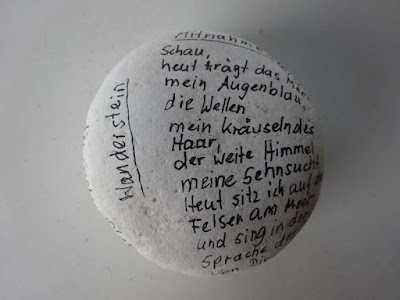 Wanderstein
Mitnahme
Schau,
heut trägt das
mein Augenblau,
die Wellen
mein kräuselndes
Haar,
der weite Himmel
meine Sehnsucht
Heut sitz ich auf
Felsen am Meer
und sing in der
Sprache der